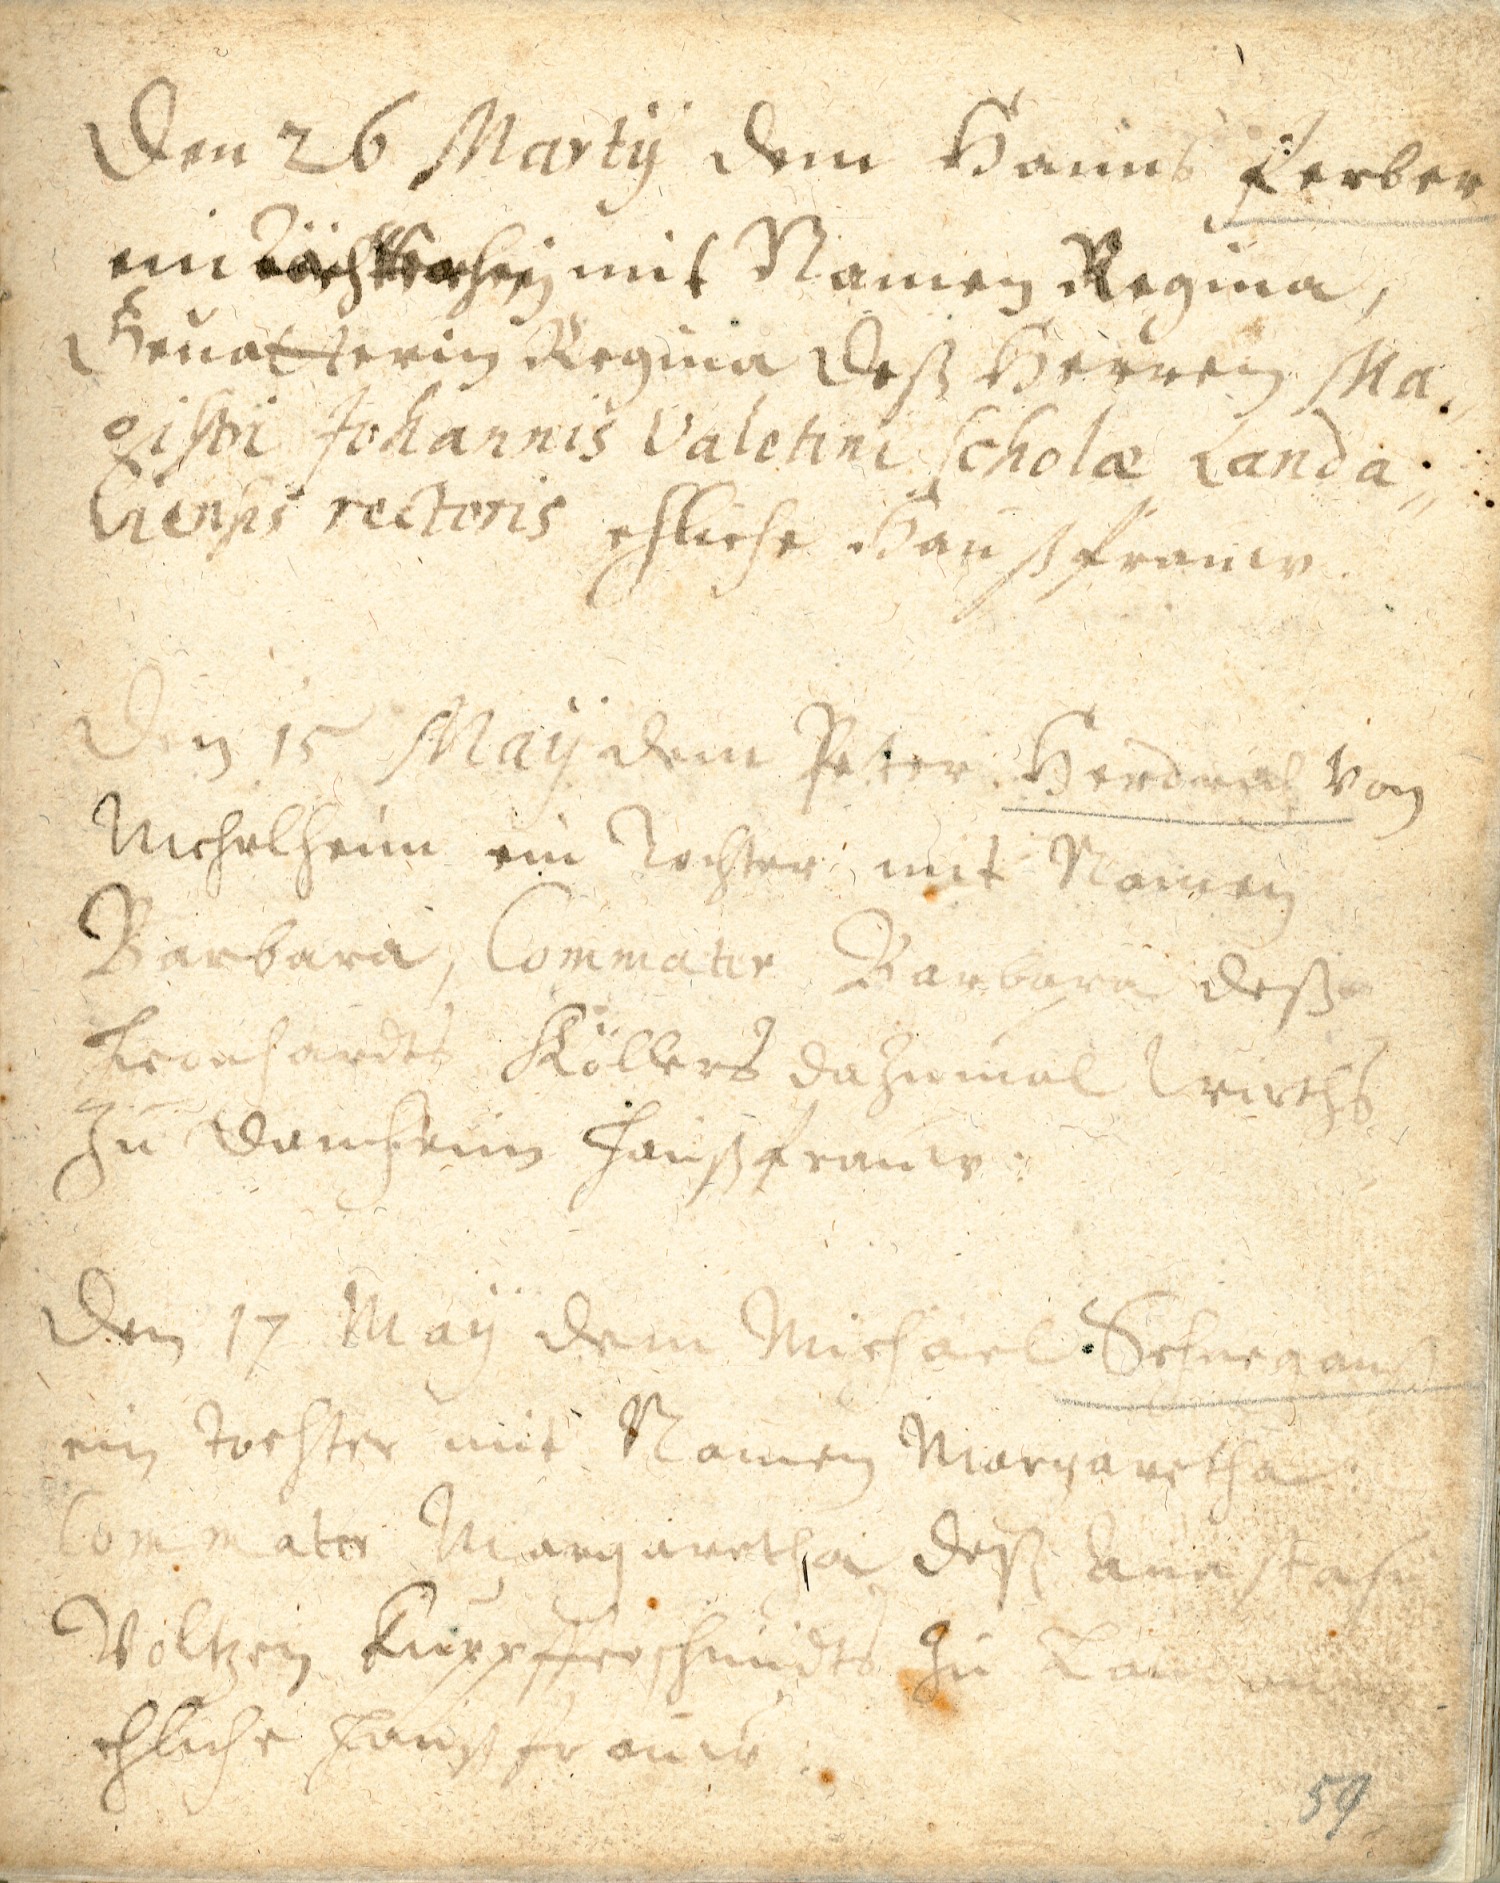 Den 26 Martÿ dem Hanns Ferber
ein Töchterlein mit Namen Regina,
Gevatterin Regina deß Herren Ma,
gistri Johannis Valetini scholæ Landa,,
viensis rectoris ehliche Haußfrauw.
Den 15 Maÿ dem Peter von
Michelheim ein Tochter mit Namen
Barbara, Commater Barbara deß
Leonhardts Köllers dazumal Wirths
zu Damheim haußfrauw.
Den 17 Maÿ dem Michael Schnegans
ein tochter mit Namen Margaretha
Commater Margaretha deß Anastasi
Voltzen Kupfferschmidts zu Landaw
ehliche haußfrauw.
59